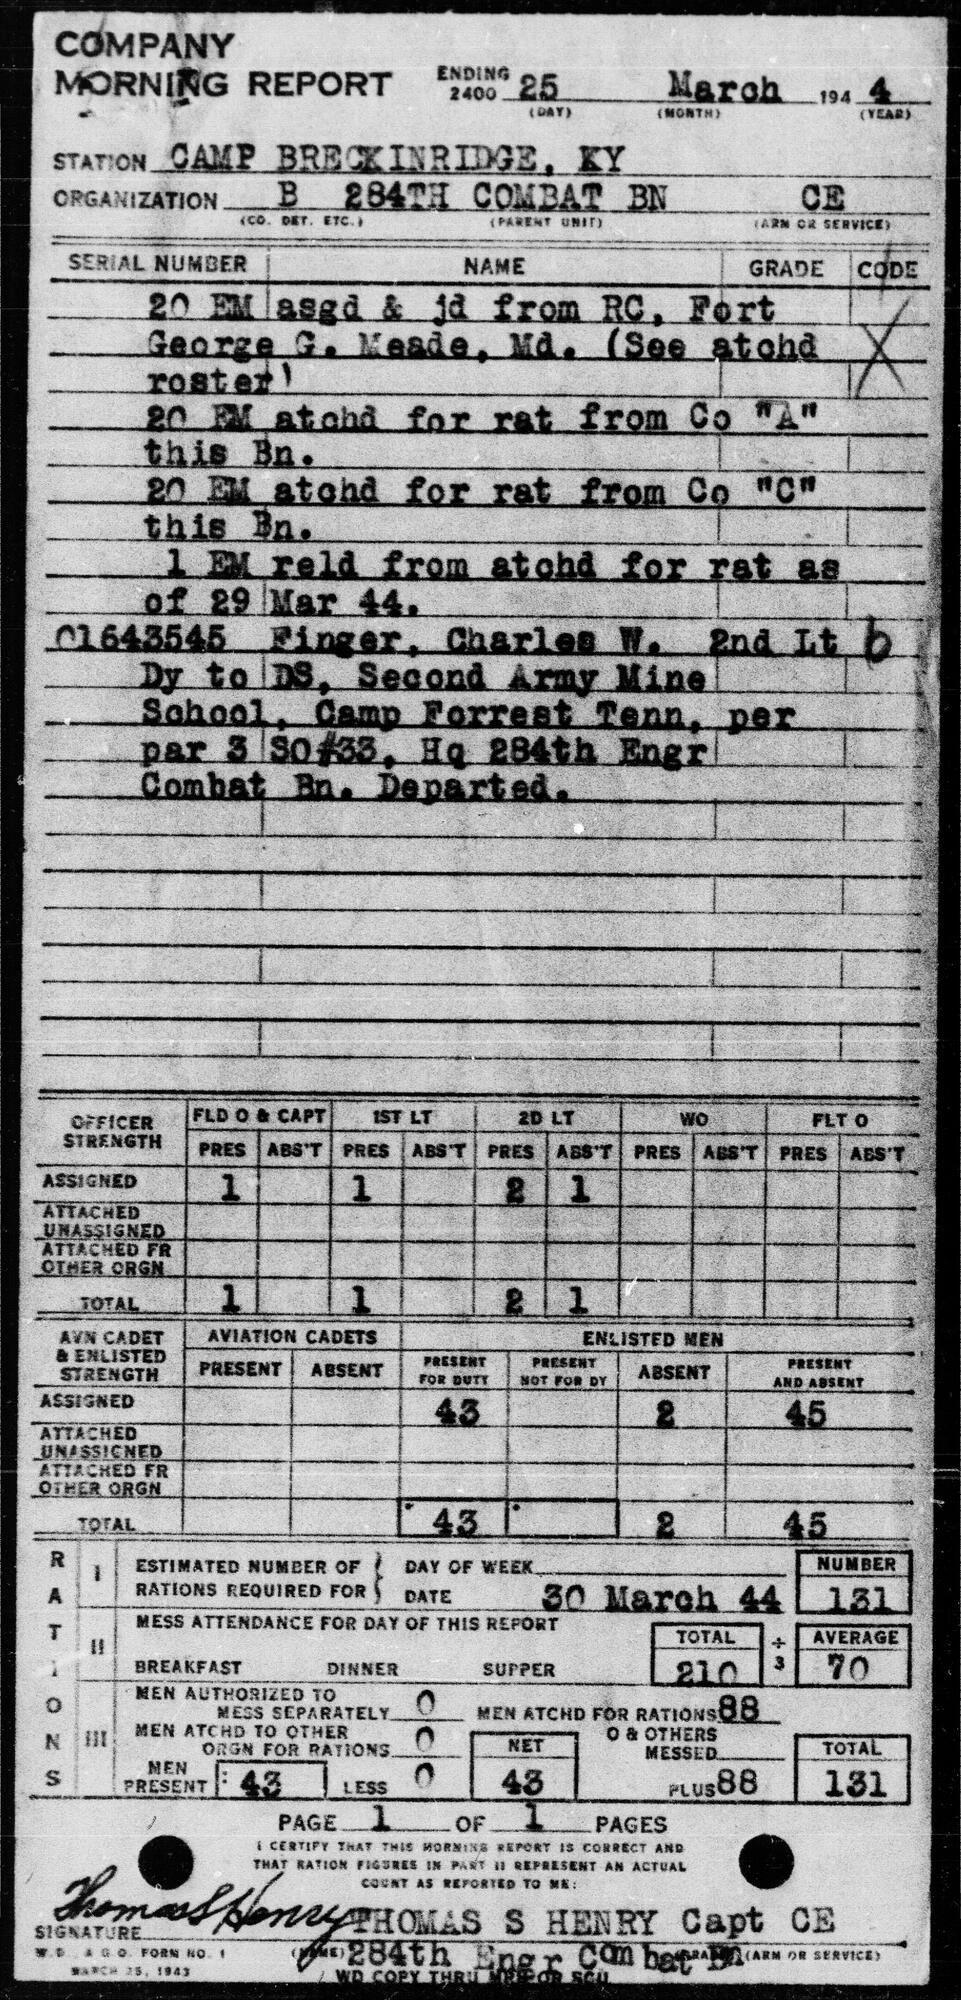 COMPANY
MORNING REPORT ENDING 2400 25 March 194 4
(DAY) (MONTH) (YEAR)
STATION CAMP BRECKINRIDGE, KY
ORGANIZATION B 284TH COMBAT BN CE
(CO. DET. ETC.) (PARENT UNIT) (ARM OR SERVICE)
SERIAL NUMBER NAME GRADE CODE
20 EM asgd & jd from RC, Fort
George G. Meade, Md. (See atchd
roster)
20 EM atchd for rat from Co "A"
this Bn.
20 EM atchd for rat from Co "C"
this Bn.
1 EM reld from atchd for rat as
of 29 Mar 44.
O1643545 Finger, Charles W. 2nd Lt b
Dy to DS, Second Army Mine
School, Camp Forrest Tenn, per
par 3 SO#33, Hq 284th Engr
Combat Bn. Departed.
OFFICER STRENGTH FLD O & CAPT 1ST LT 2D LT WO FLT O
PRES ABS'T PRES ABS'T PRES ABS'T PRES ABS'T PRES ABS'T
ASSIGNED 1 1 2 1
ATTACHED
UNASSIGNED
ATTACHED FR
OTHER ORGN
TOTAL 1 1 2 1
AVN CADET & ENLISTED STRENGTH AVIATION CADETS ENLISTED MEN
PRESENT ABSENT PRESENT FOR DUTY PRESENT NOT FOR DY ABSENT PRESENT AND ABSENT
ASSIGNED 43 2 45
ATTACHED
UNASSIGNED
ATTACHED FR
OTHER ORGN
TOTAL 43 2 45
RATIONS
I ESTIMATED NUMBER OF DAY OF WEEK NUMBER
RATIONS REQUIRED FOR DATE 30 March 44 131
II MESS ATTENDANCE FOR DAY OF THIS REPORT TOTAL ÷ AVERAGE
BREAKFAST DINNER SUPPER 210 3 70
III MEN AUTHORIZED TO
MESS SEPARATELY 0 MEN ATCHD FOR RATIONS 88
MEN ATCHD TO OTHER
ORGN FOR RATIONS 0 NET O & OTHERS
MESSED TOTAL
MEN PRESENT 43 LESS 0 43 PLUS 88 131
PAGE 1 OF 1 PAGES
I CERTIFY THAT THIS MORNING REPORT IS CORRECT AND
THAT RATION FIGURES IN PART II REPRESENT AN ACTUAL
COUNT AS REPORTED TO ME:
Thomas S Henry THOMAS S HENRY Capt CE
SIGNATURE
W.D. A.G.O. FORM NO. 1 (NAME) 284th Engr Combat Bn (ARM OR SERVICE)
MARCH 25, 1943
WD COPY THRU MRU OR SCU